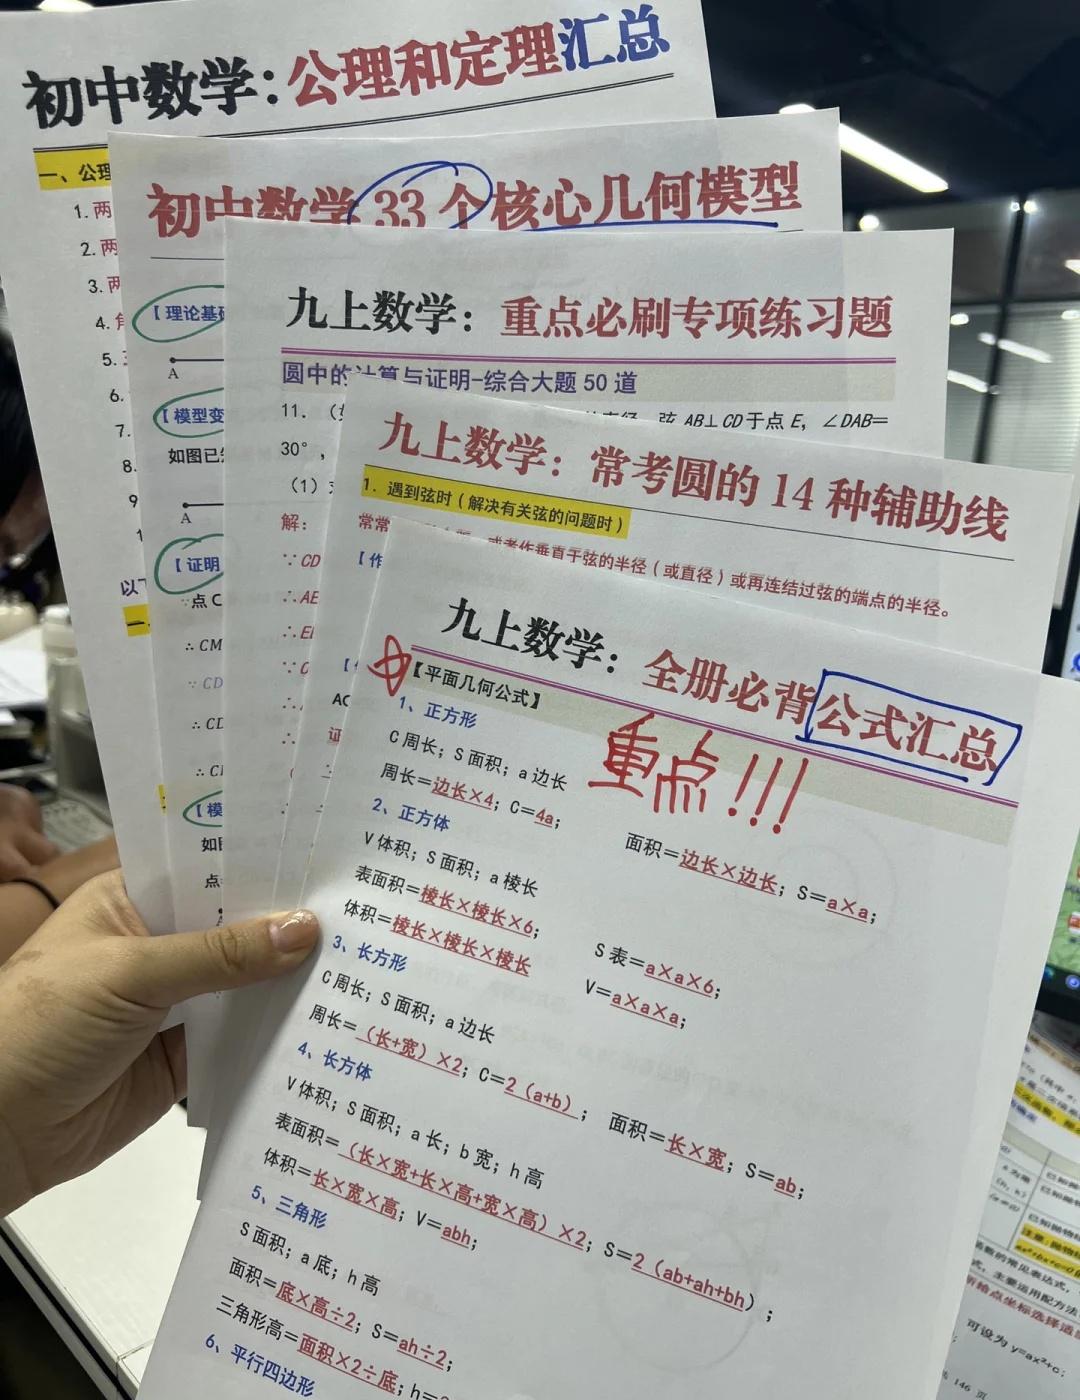 初中数学：公理和定理汇总
一、公理
1. 两
2. 两
3. 两
4. 角
5.
6.
7.
8.
9
以下
初中数学 33 个核心几何模型
【理论基础
A
【模型变
如图已知
A
【证明
∵点 C
∴CM
∵CD
∴CD
【模
如图
点
九上数学：重点必刷专项练习题
圆中的计算与证明-综合大题 50 道
11.
弦 AB⊥CD 于点 E，∠DAB＝
30°，
（1）
解：
∵CD
∴AE
证
九上数学：常考圆的 14 种辅助线
1. 遇到弦时（解决有关弦的问题时）
常常
或者作垂直于弦的半径（或直径）或再连结过弦的端点的半径。
【作
九上数学：全册必背公式汇总
【平面几何公式】
重点!!!
1、正方形
C 周长；S 面积；a 边长
周长＝边长×4；C＝4a； 面积＝边长×边长；S＝a×a；
2、正方体
V 体积；S 面积；a 棱长
表面积＝棱长×棱长×6； S 表＝a×a×6；
体积＝棱长×棱长×棱长 V＝a×a×a；
3、长方形
C 周长；S 面积；a 边长
周长＝（长+宽）×2；C＝2（a+b）； 面积＝长×宽；S＝ab；
4、长方体
V 体积；S 面积；a 长；b 宽；h 高
表面积＝（长×宽+长×高+宽×高）×2；S＝2（ab+ah+bh）；
体积＝长×宽×高；V＝abh；
5、三角形
S 面积；a 底；h 高
面积＝底×高÷2；S＝ah÷2；
三角形高＝面积×2÷底；h＝
6、平行四边形
可设为 y=ax²+c；
146 页